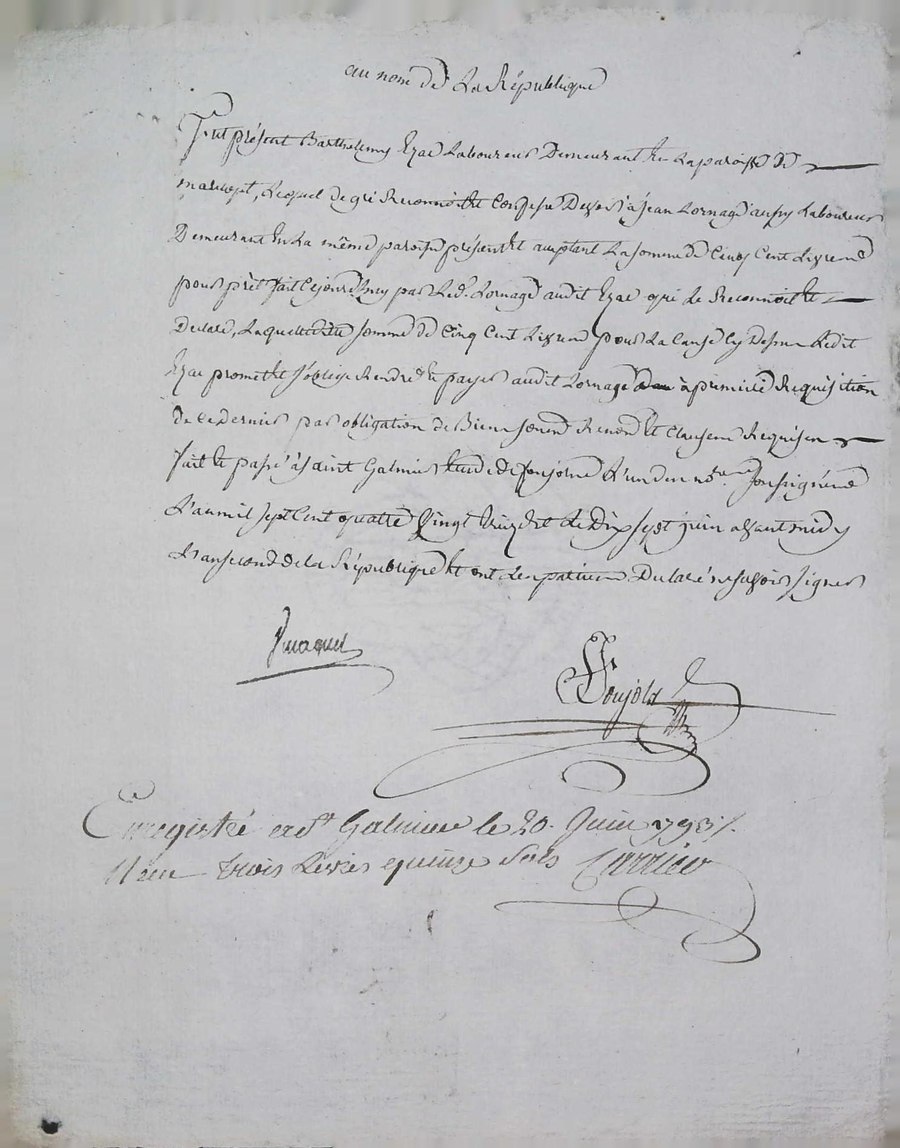 au nom de La République
fut présent Barthelemy Ezac Laboureur Demeurant En La paroisse de
marcopt, Lequel de gré Reconnoit et Confesse Devoir à Jean Lornage aussy Laboureur
Demeurant En La même paroisse présent et acceptant La somme de Cinq Cent Livres
pour prêt fait Cejourd'huy par Led. Lornage audit Ezac qui Le Reconnoit et
Declare, Laquelle ditte somme de Cinq Cent Livres pour La Cause Cy Dessus Ledit
Ezac promet et s'oblige Rendre et payer audit Lornage à premiere Requisition
de Ce dernier par obligation de Biens soumis. Renon. et Clauses Requises
fait et passé à Saint Galmier Etude de Soujols L'un des not. Soussignés
L'an mil sept Cent quatre Vingt treize Et Le Dix sept juin avant midy
L'an second de la République Et ont Les parties Declaré ne savoir signer
Soujols
Enregistré à St Galmier le 20. Juin 1793 /.
Reçu trois Livres quinze sols Carrier